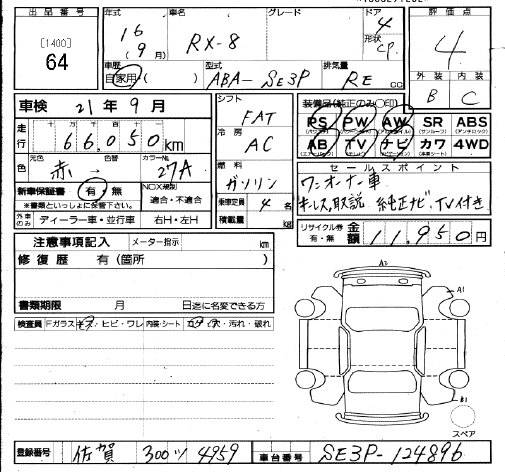 出品番号
[1400]
64
年式 16(9月)
車名 RX-8
グレード
ドア 4
形状 CP.
評価点 4
外装 B
内装 C
車歴 自家用( )
型式 ABA-SE3P
排気量 RE cc
車検 21年9月
走行 十万千百十一 66,050 km
色 元色 赤 色替 カラーNo. 27A
新車保証書 有・無
※書類といっしょに保管下さい。
NOX規制 適合・不適合
外車のみ ディーラー車・並行車 右H・左H
シフト FAT
冷房 AC
燃料 ガソリン
乗車定員 4 名
積載量 kg
装備品(純正のみ○印)
PS PW AW SR ABS
AB TV ナビ カワ 4WD
セールスポイント
ワンオーナー車
キーレス,取説 純正ナビ,TV付き
リサイクル券 有・無 金額 11,950円
注意事項記入 メーター指示 km
修復歴 有(箇所 )
書類期限 月 日迄に名変できる方
検査員 Fガラス キズ・ヒビ・ワレ 内装・シート コゲ・穴・汚れ・破れ
A2
A1
B1
スペア
登録番号 佐賀 300ツ4959
車台番号 SE3P-124896